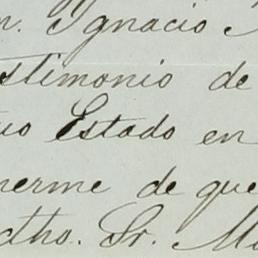 n. Ignacio
stimonio de
uo Estado en
nerme de que
dho. Sr. M